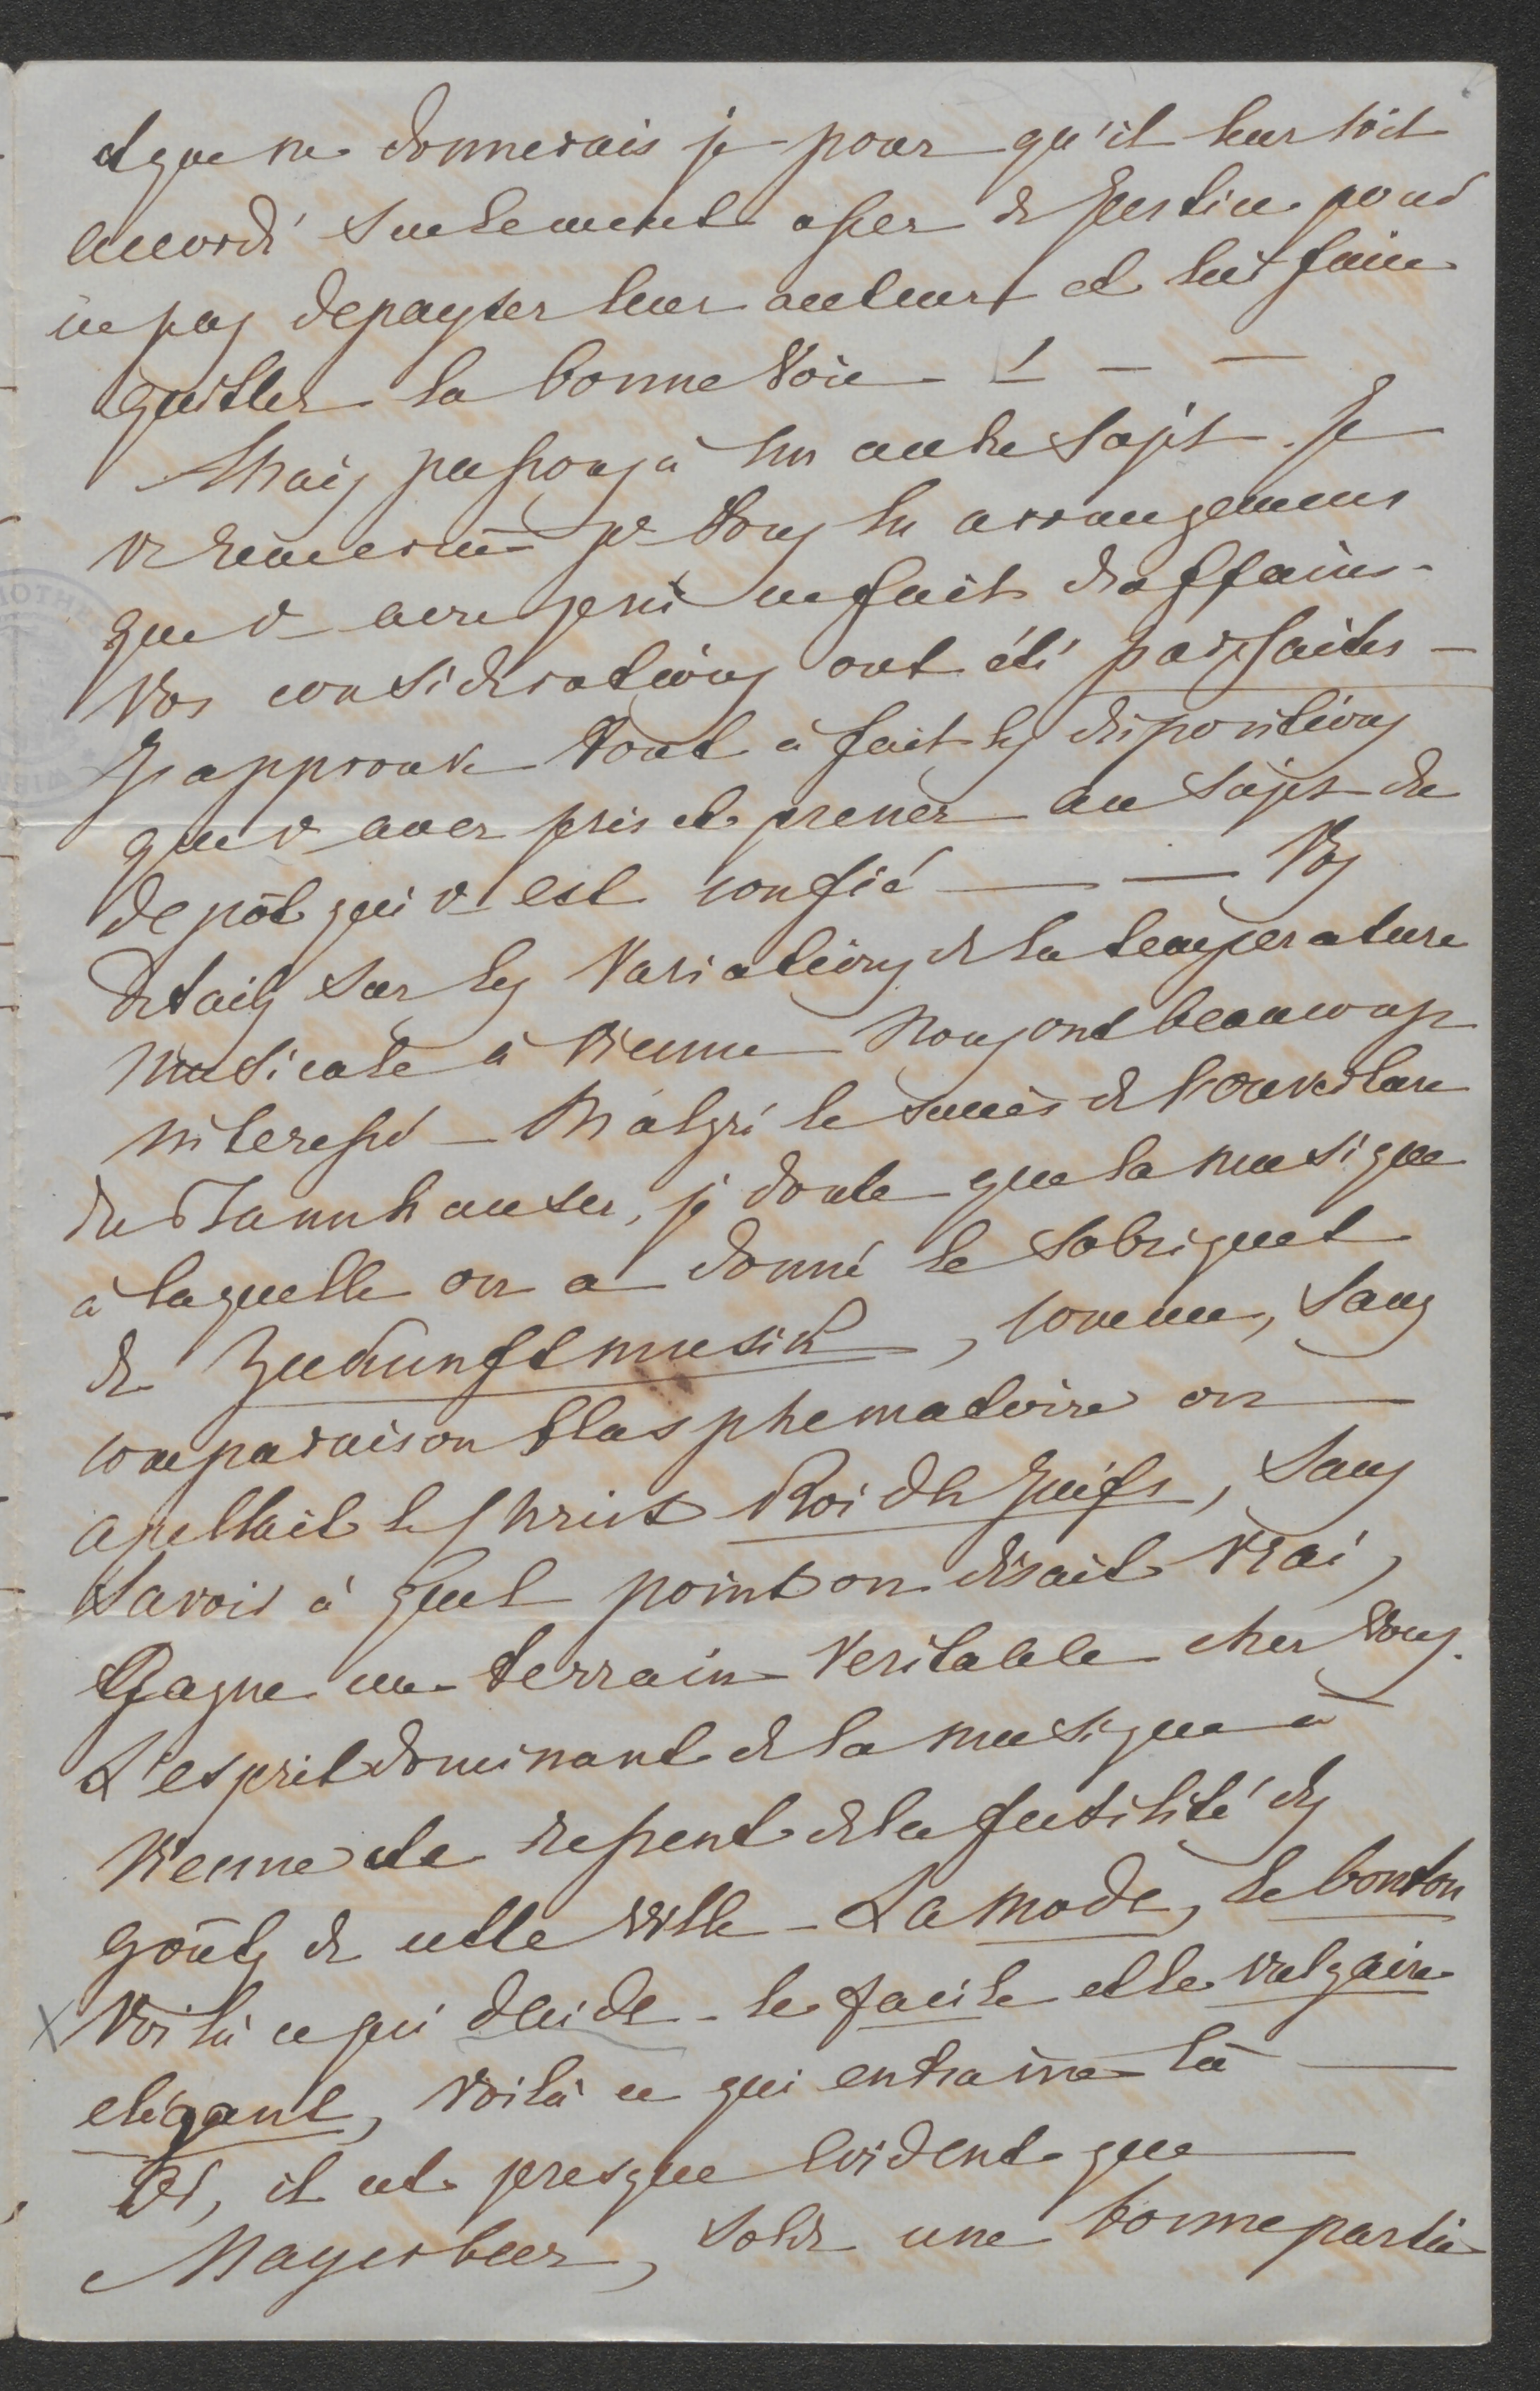 et que ne donnerais je pour qu'il leur soit
accordé seulement assez de justice pour
ne pas depayser leur auteur et lui faire
quitter la bonne voie - ! — —
Mais passons à un autre sujet. Je
v remercie pr tous les arrangemens
que v avez pris en fait d'affaires -
Vos considerations ont été parfaites —
J'approuve tout à fait les dispositions
que v avez pris et prenez au sujet du
depôt qui v est confié — — Vos
details sur les variations de la temperature
musicale à Vienne nous ont beaucoup
interessé — Malgré le succès de l'ouverture
du Tannhauser, je doute que la musique
à laquelle on a donné le sobriquet
de Zukunftmusik, comme, sans
comparaison blasphematoire on
apellait le Christ Roi des Juifs, sans
savoir à quel point on disait vrai,
Gagne un terrain veritable chez vous.
L'esprit dominant de la musique à
Vienne se ressent de la futilité des
goûts de cette ville - La mode, le bonton
Voilà ce qui decide - le facile et le vulgaire
elégant, voilà ce qui entraine là —
Or, il est presque evident que —
Mayerbeer, solde une bonne partie